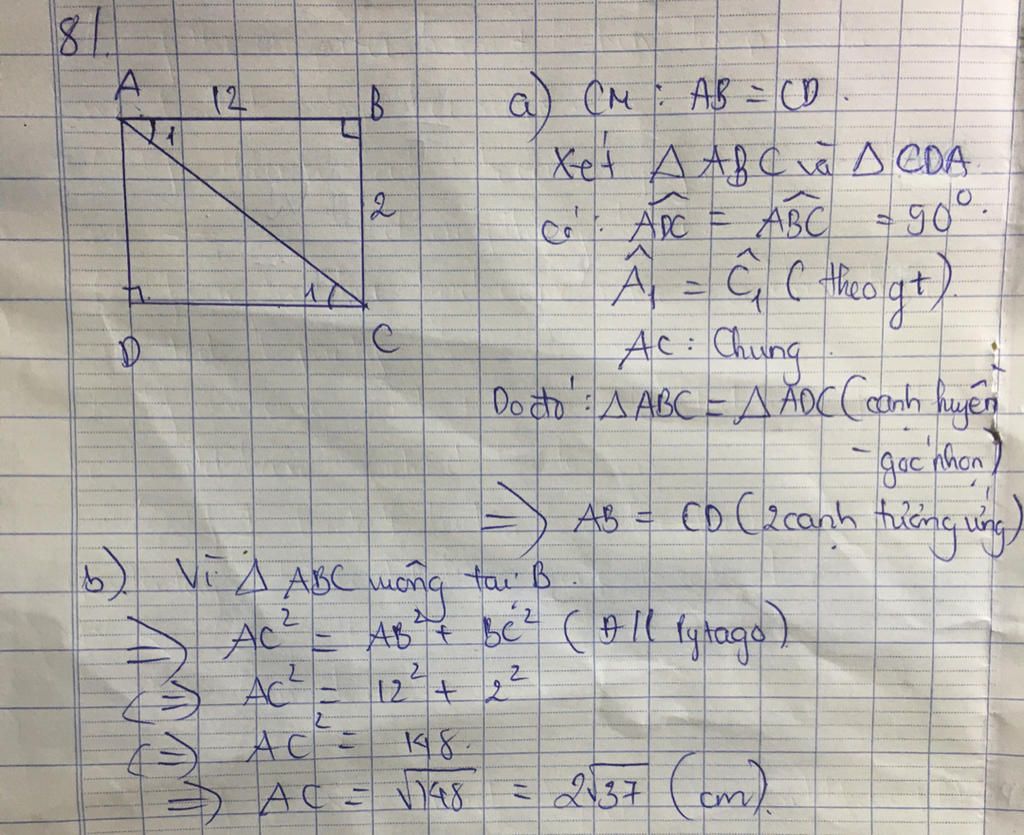 8/.
A 12 B
1
2
1
D C
a) CM : AB = CD.
Xét △ ABC và △ CDA
Có : \widehat{ADC} = \widehat{ABC} = 90°.
Â₁ = Ĉ₁ (theo gt).
AC : Chung.
Do đó : △ ABC = △ ADC (cạnh huyền
- góc nhọn)
=> AB = CD (2 cạnh tương ứng)
b). Vì △ ABC vuông tại B.
=> AC² = AB² + BC² (Đ/l Pytago)
<=> AC² = 12² + 2²
<=> AC² = 148.
=> AC = √148 = 2√37 (cm).